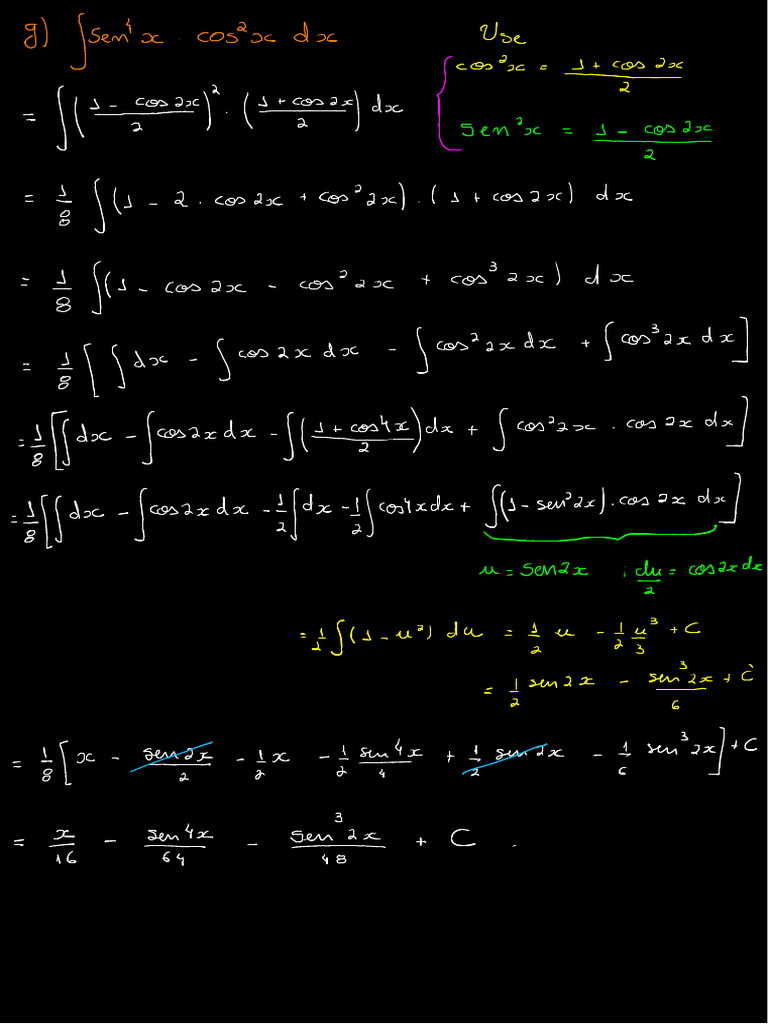 g) ∫ sen⁴x · cos²x dx
Use
cos²x = (1 + cos 2x)/2
sen²x = (1 - cos 2x)/2
= ∫ ((1 - cos 2x)/2)² · ((1 + cos 2x)/2) dx
= 1/8 ∫ (1 - 2 · cos 2x + cos² 2x) · (1 + cos 2x) dx
= 1/8 ∫ (1 - cos 2x - cos² 2x + cos³ 2x) dx
= 1/8 [∫ dx - ∫ cos 2x dx - ∫ cos² 2x dx + ∫ cos³ 2x dx]
= 1/8 [∫ dx - ∫ cos 2x dx - ∫ ((1 + cos 4x)/2) dx + ∫ cos² 2x · cos 2x dx]
= 1/8 [∫ dx - ∫ cos 2x dx - 1/2 ∫ dx - 1/2 ∫ cos 4x dx + ∫ (1 - sen² 2x) · cos 2x dx]
u = sen 2x ; du/2 = cos 2x dx
= 1/2 ∫ (1 - u²) du = 1/2 u - 1/2 u³/3 + C
= 1/2 sen 2x - sen³ 2x/6 + C
= 1/8 [x - sen 2x/2 - 1/2 x - 1/2 sen 4x/4 + 1/2 sen 2x - 1/6 sen³ 2x] + C
= x/16 - sen 4x/64 - sen³ 2x/48 + C .